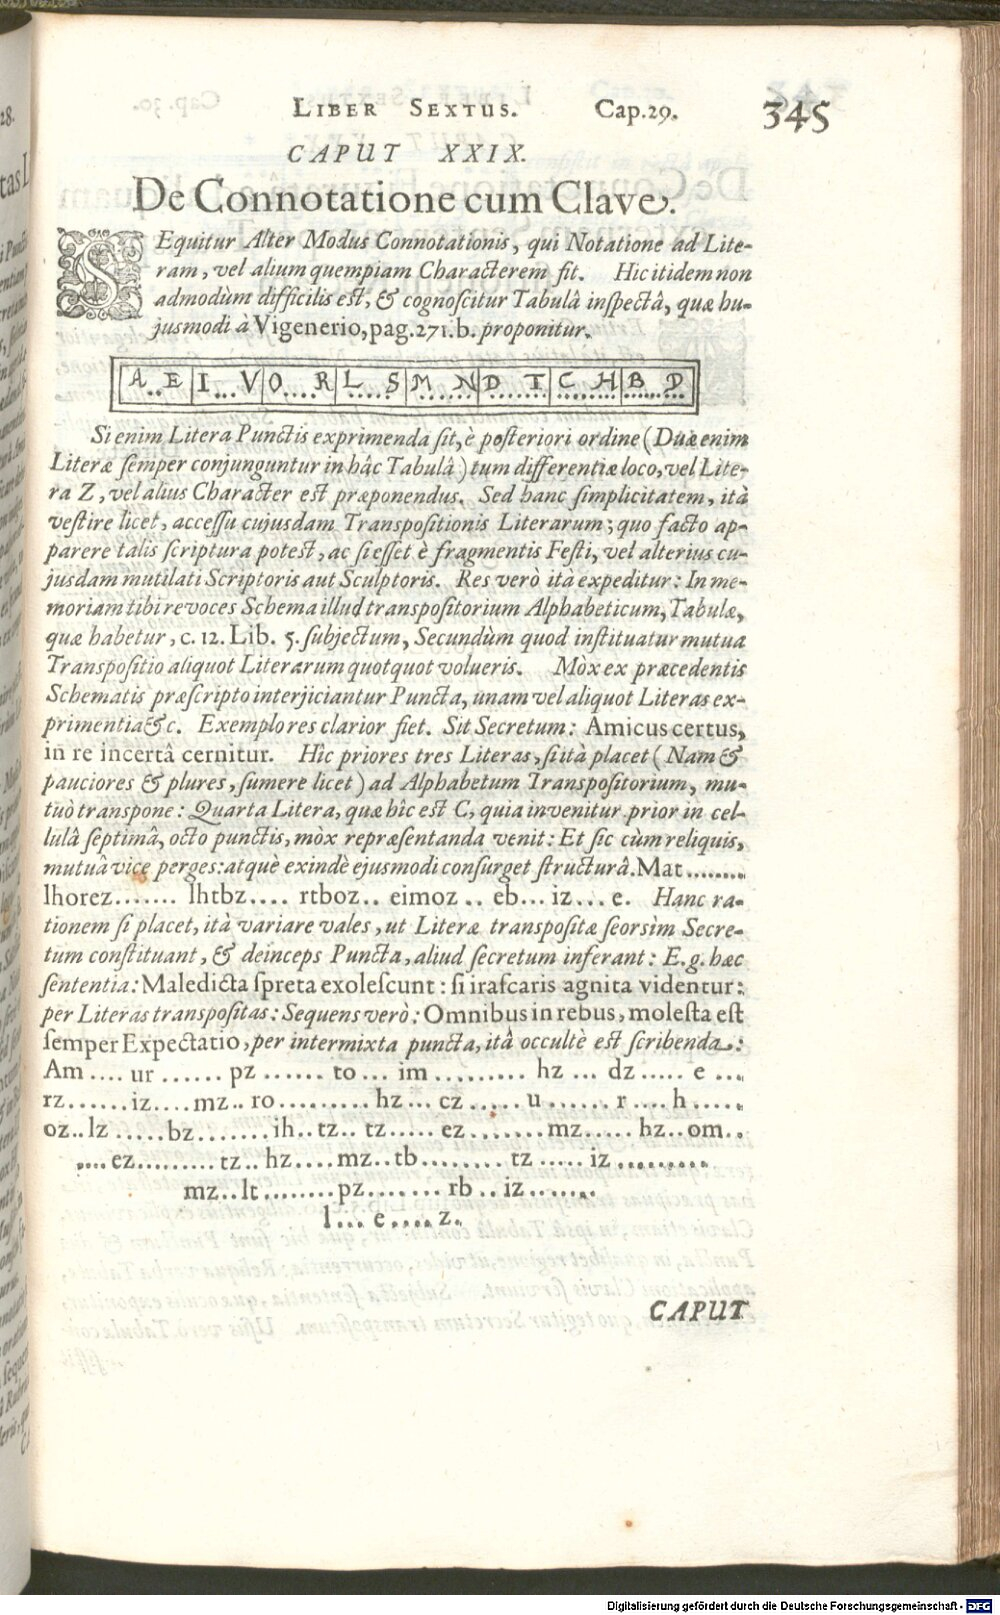 LIBER SEXTUS. Cap.29. 345
CAPUT XXIX.
De Connotatione cum Clave.
SEquitur Alter Modus Connotationis, qui Notatione ad Lite-
ram, vel alium quempiam Characterem fit. Hic itidem non
admodùm difficilis est, & cognoscitur Tabulâ inspectâ, quæ hu-
jusmodi à Vigenerio, pag.271.b. proponitur.
A .. E I ... V O .... R L ..... S M ...... N D ....... T C ........ H B ......... P
Si enim Litera Punctis exprimenda sit, è posteriori ordine (Duæ enim
Literæ semper conjunguntur in hâc Tabulâ) tum differentiæ loco, vel Lite-
ra Z, vel alius Character est præponendus. Sed hanc simplicitatem, itâ
vestire licet, accessu cujusdam Transpositionis Literarum; quo facto ap-
parere talis scriptura potest, ac si esset è fragmentis Festi, vel alterius cu-
jusdam mutilati Scriptoris aut Sculptoris. Res verò itâ expeditur: In me-
moriam tibi revoces Schema illud transpositorium Alphabeticum, Tabulæ,
quæ habetur, c. 12. Lib. 5. subjectum, Secundùm quod instituatur mutua
Transpositio aliquot Literarum quotquot volueris. Mòx ex præcedentis
Schematis præscripto interjiciantur Puncta, unam vel aliquot Literas ex-
primentia &c. Exemplo res clarior fiet. Sit Secretum: Amicus certus,
in re incertâ cernitur. Hîc priores tres Literas, si itâ placet (Nam &
pauciores & plures, sumere licet) ad Alphabetum Transpositorium, mu-
tuò transpone: Quarta Litera, quæ hîc est C, quia invenitur prior in cel-
lulâ septimâ, octo punctis, mòx repræsentanda venit: Et sic cùm reliquis,
mutuâ vice perges: atquè exindè ejusmodi consurget structurâ. Mat........
lhorez....... lhtbz.... rtboz.. eimoz.. eb... iz... e. Hanc ra-
tionem si placet, itâ variare vales, ut Literæ transpositæ seorsìm Secre-
tum constituant, & deinceps Puncta, aliud secretum inferant: E.g. hæc
sententia: Maledicta spreta exolescunt: si irascaris agnita videntur:
per Literas transpositas: Sequens verò: Omnibus in rebus, molesta est
semper Expectatio, per intermixta puncta, itâ occultè est scribenda:
Am .... ur ...... pz ...... to ... im ......... hz ... dz ..... e ...
rz.......iz....mz..ro.........hz...cz.....u......r....h.....
oz..lz.....bz.......ih..tz..tz.....ez.......mz.....hz..om..
....ez.........tz..hz....mz..tb........tz.....iz.........
mz..lt........pz.......rb..iz.......
l... e..... z..
CAPUT
Digitalisierung gefördert durch die Deutsche Forschungsgemeinschaft - DFG